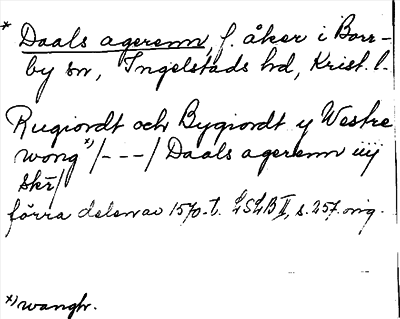 * Daals agerenn, f. åker i Borr-
by sn, Ingelstads hd, Krist. l.
Rugiordt och Bygiordt y Westre
wong *)/---/ Daals agerenn iiij
skr/
förra delen av 1570-t. LSLB II, s. 257. orig.
*) wangh.